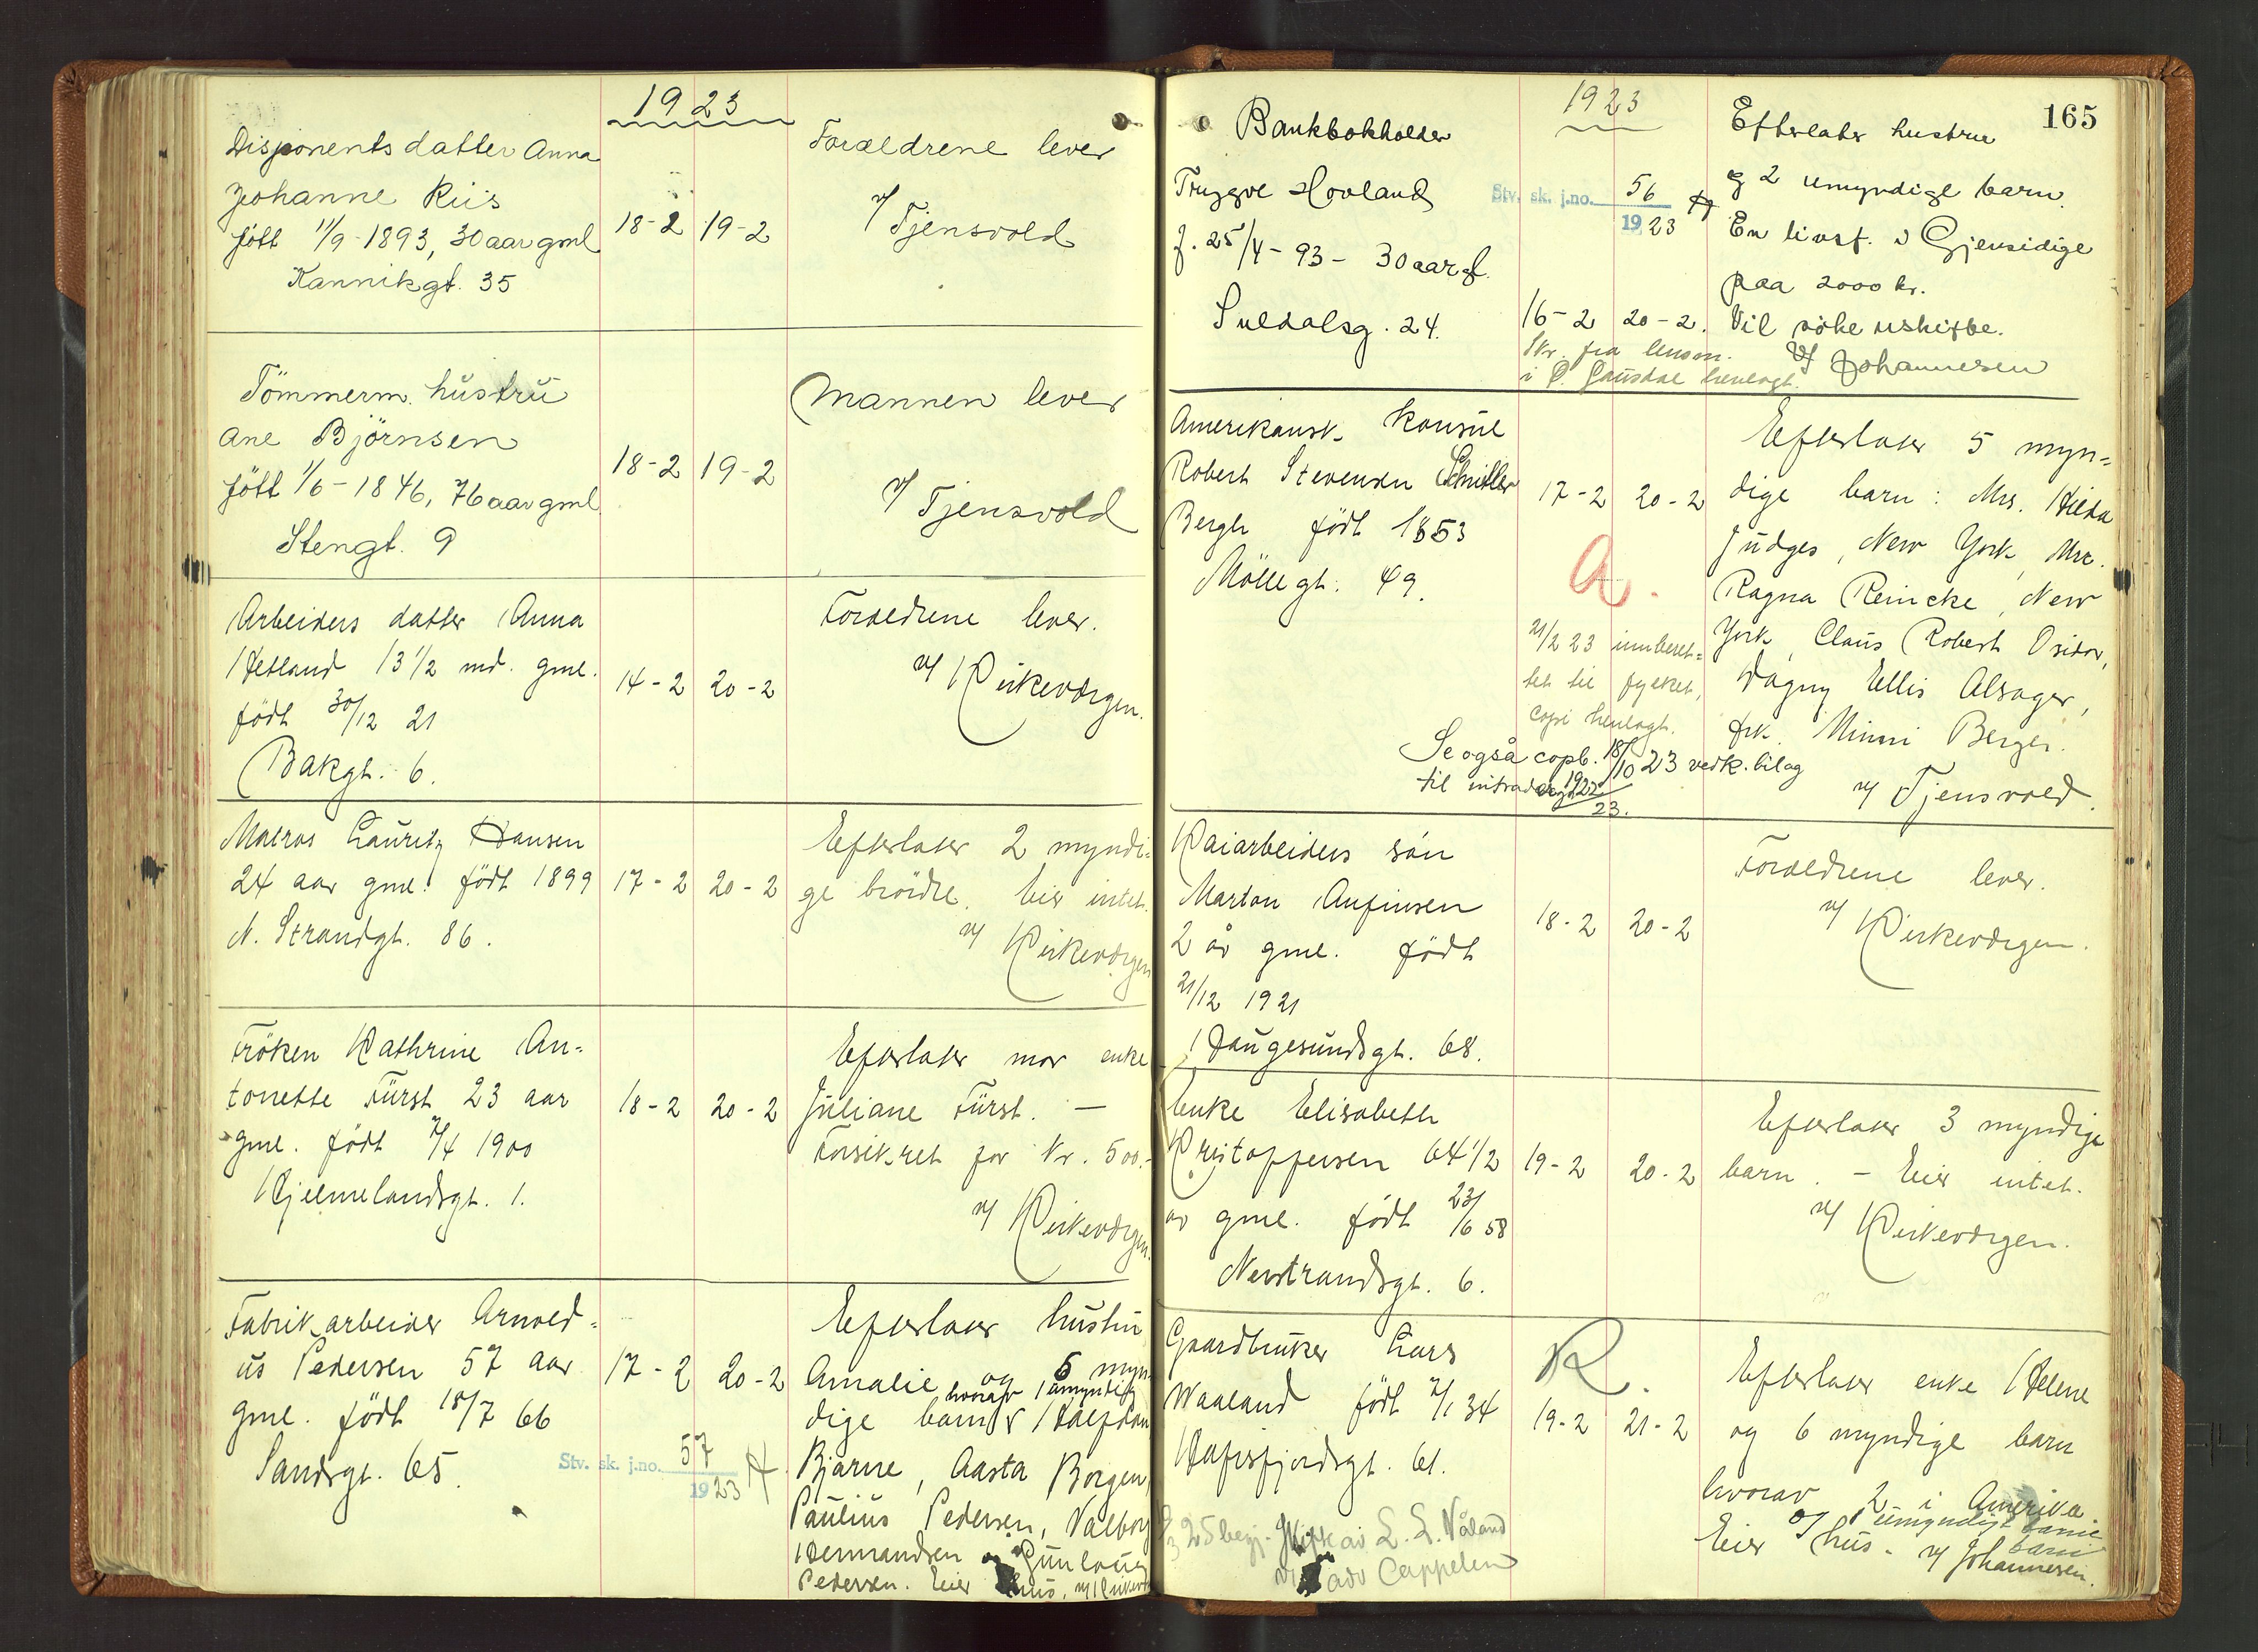 1923
Disponents datter Anna
Johanne Riis
født 11/9-1893, 30 aar gml
Kannikgt. 35
18-2 19-2
Forældrene lever
v/ Tjensvold
Tömmerm. hustru
Ane Björnsen
født 1/6-1846, 76 aar gml.
Stengt. 9
18-2 19-2
Mannen lever
v/ Tjensvold
Arbeiders datter Anna
Hetland 13 1/2 md. gml.
födt 30/12 21
Bakgt. 6.
14-2 20-2
Forældrene lever.
v/ Kirkevergen.
Matros Lauritz Hansen
24 aar gml. födt 1899
N. Strandgt. 86.
17-2 20-2
Efterlater 2 myndi-
ge brödre. Eier intet.
v/ Kirkevergen
Fröken Kathrine An-
tonette Fürst 23 aar
gml. födt 7/4 1900
Hjelmelandsgt. 1.
18-2 20-2
Efterlater mor enke
Juliane Fürst. —
Forsikret for Kr. 500.-
v/ Kirkevergen.
Fabrikarbeider Arnold-
us Pedersen 57 aar
gml. födt 18/7 66
Sandsgt. 65.
17-2 20-2
Stv. sk. j.no. 57
1923
Efterlater hustru
Amalie og 6 myn-
hvorav 1 umyndig
dige barn: Halfdan
Bjarne, Aasta Borgen,
Paulius Pedersen, Valborg
Hermandsen og Gunlaug
Pedersen. Eier hus. v/ Kirkev
165
1923
Bankbokholder
Tryggve Hovland
f. 25/4-93- 30 aar gl.
Suldalsg. 24.
Stv. sk. j.no. 56
1923
16-2 20-2.
Skr. fra lensm.
i Ö. Gausdal henlagt.
Efterlater hustru
og 2 umyndige barn.
En livsf. i Gjensidige
paa 2000 kr.
Vil söke uskifte.
v/ Johannesen
Amerikansk Konsul
Robert Stevensen Schiller
Bergh födt 1853
Möllegt. 49.
17-2 20-2
A.
21/2 23 innberet-
tet til fylket,
copi henlagt.
Se også copb. 18/10 23 vedk. bilag
til 1922/
23.
Efterlater 5 myn-
dige barn: Mrs. Hilda
Judges, New York, Mrs.
Ragna Reincke, New
York, Claus Robert Osidor,
Dagny Ellis Alsager,
frk. Minni Berger.
v/ Tjensvold.
Kaiarbeiders sön
Marton Anfinsen
2 år gml. födt
21/12 1921
Haugesundsgt. 68.
18-2 20-2
Forældrene lever.
v/ Kirkevergen.
Enke Elisabeth
Kristoffersen 64 1/2
år gml. födt 23/6 58
Nerstrandsgt. 6.
19-2 20-2
Efterlater 3 myndige
barn. - Eier intet.
v/ Kirkevergen.
Gaardbruker Lars
Waaland födt 7/1 34
Hafrsfjordsgt. 61.
R.
19-2 21-2
25 begj. skifte av L. L. Våland
v/ adv Cappelen
Efterlater enke Helene
og 6 myndige barn
hvorav 2 i Amerika
og 1 umyndigt barne
barn
Eier hus. v/ Johannesen.